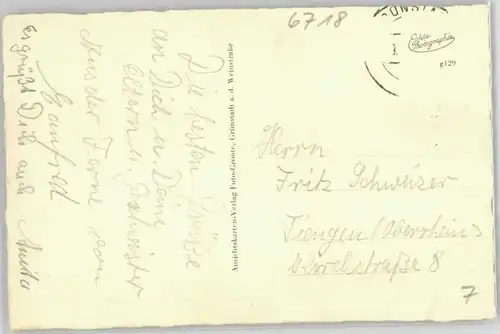 6718
ÜNST
Echte
Photographie
g129
Die besten Grüße
an Dich u. Deine
Eltern u. Geschwister
Aus der Ferne von
Manfred
es grüßt Dich auch Anita
Ansichtskarten-Verlag Foto-Gronte, Grünstadt a. d. Weinstraße
Herrn
Fritz Schweizer
Tiengen (Oberrhein)
8
7